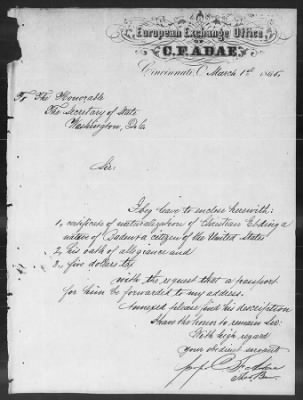 European Exchange Office
OF
C. F. ADAE
Cincinnati, O. March 1st 1866
To The Honorable
The Secretary of State
Washington, D.C.
Sir:
I beg leave to enclose herewith:
1, certificate of naturalization of Christian Ebding a
native of Baden & a citizen of the United States
2, his oath of allegiance and
3, five dollars tx
with the request that a passport
for him be forwarded to my address.
Annexed please find his description
I have the honor to remain Sir
With high regard
your obedient servant
C. F. Adae